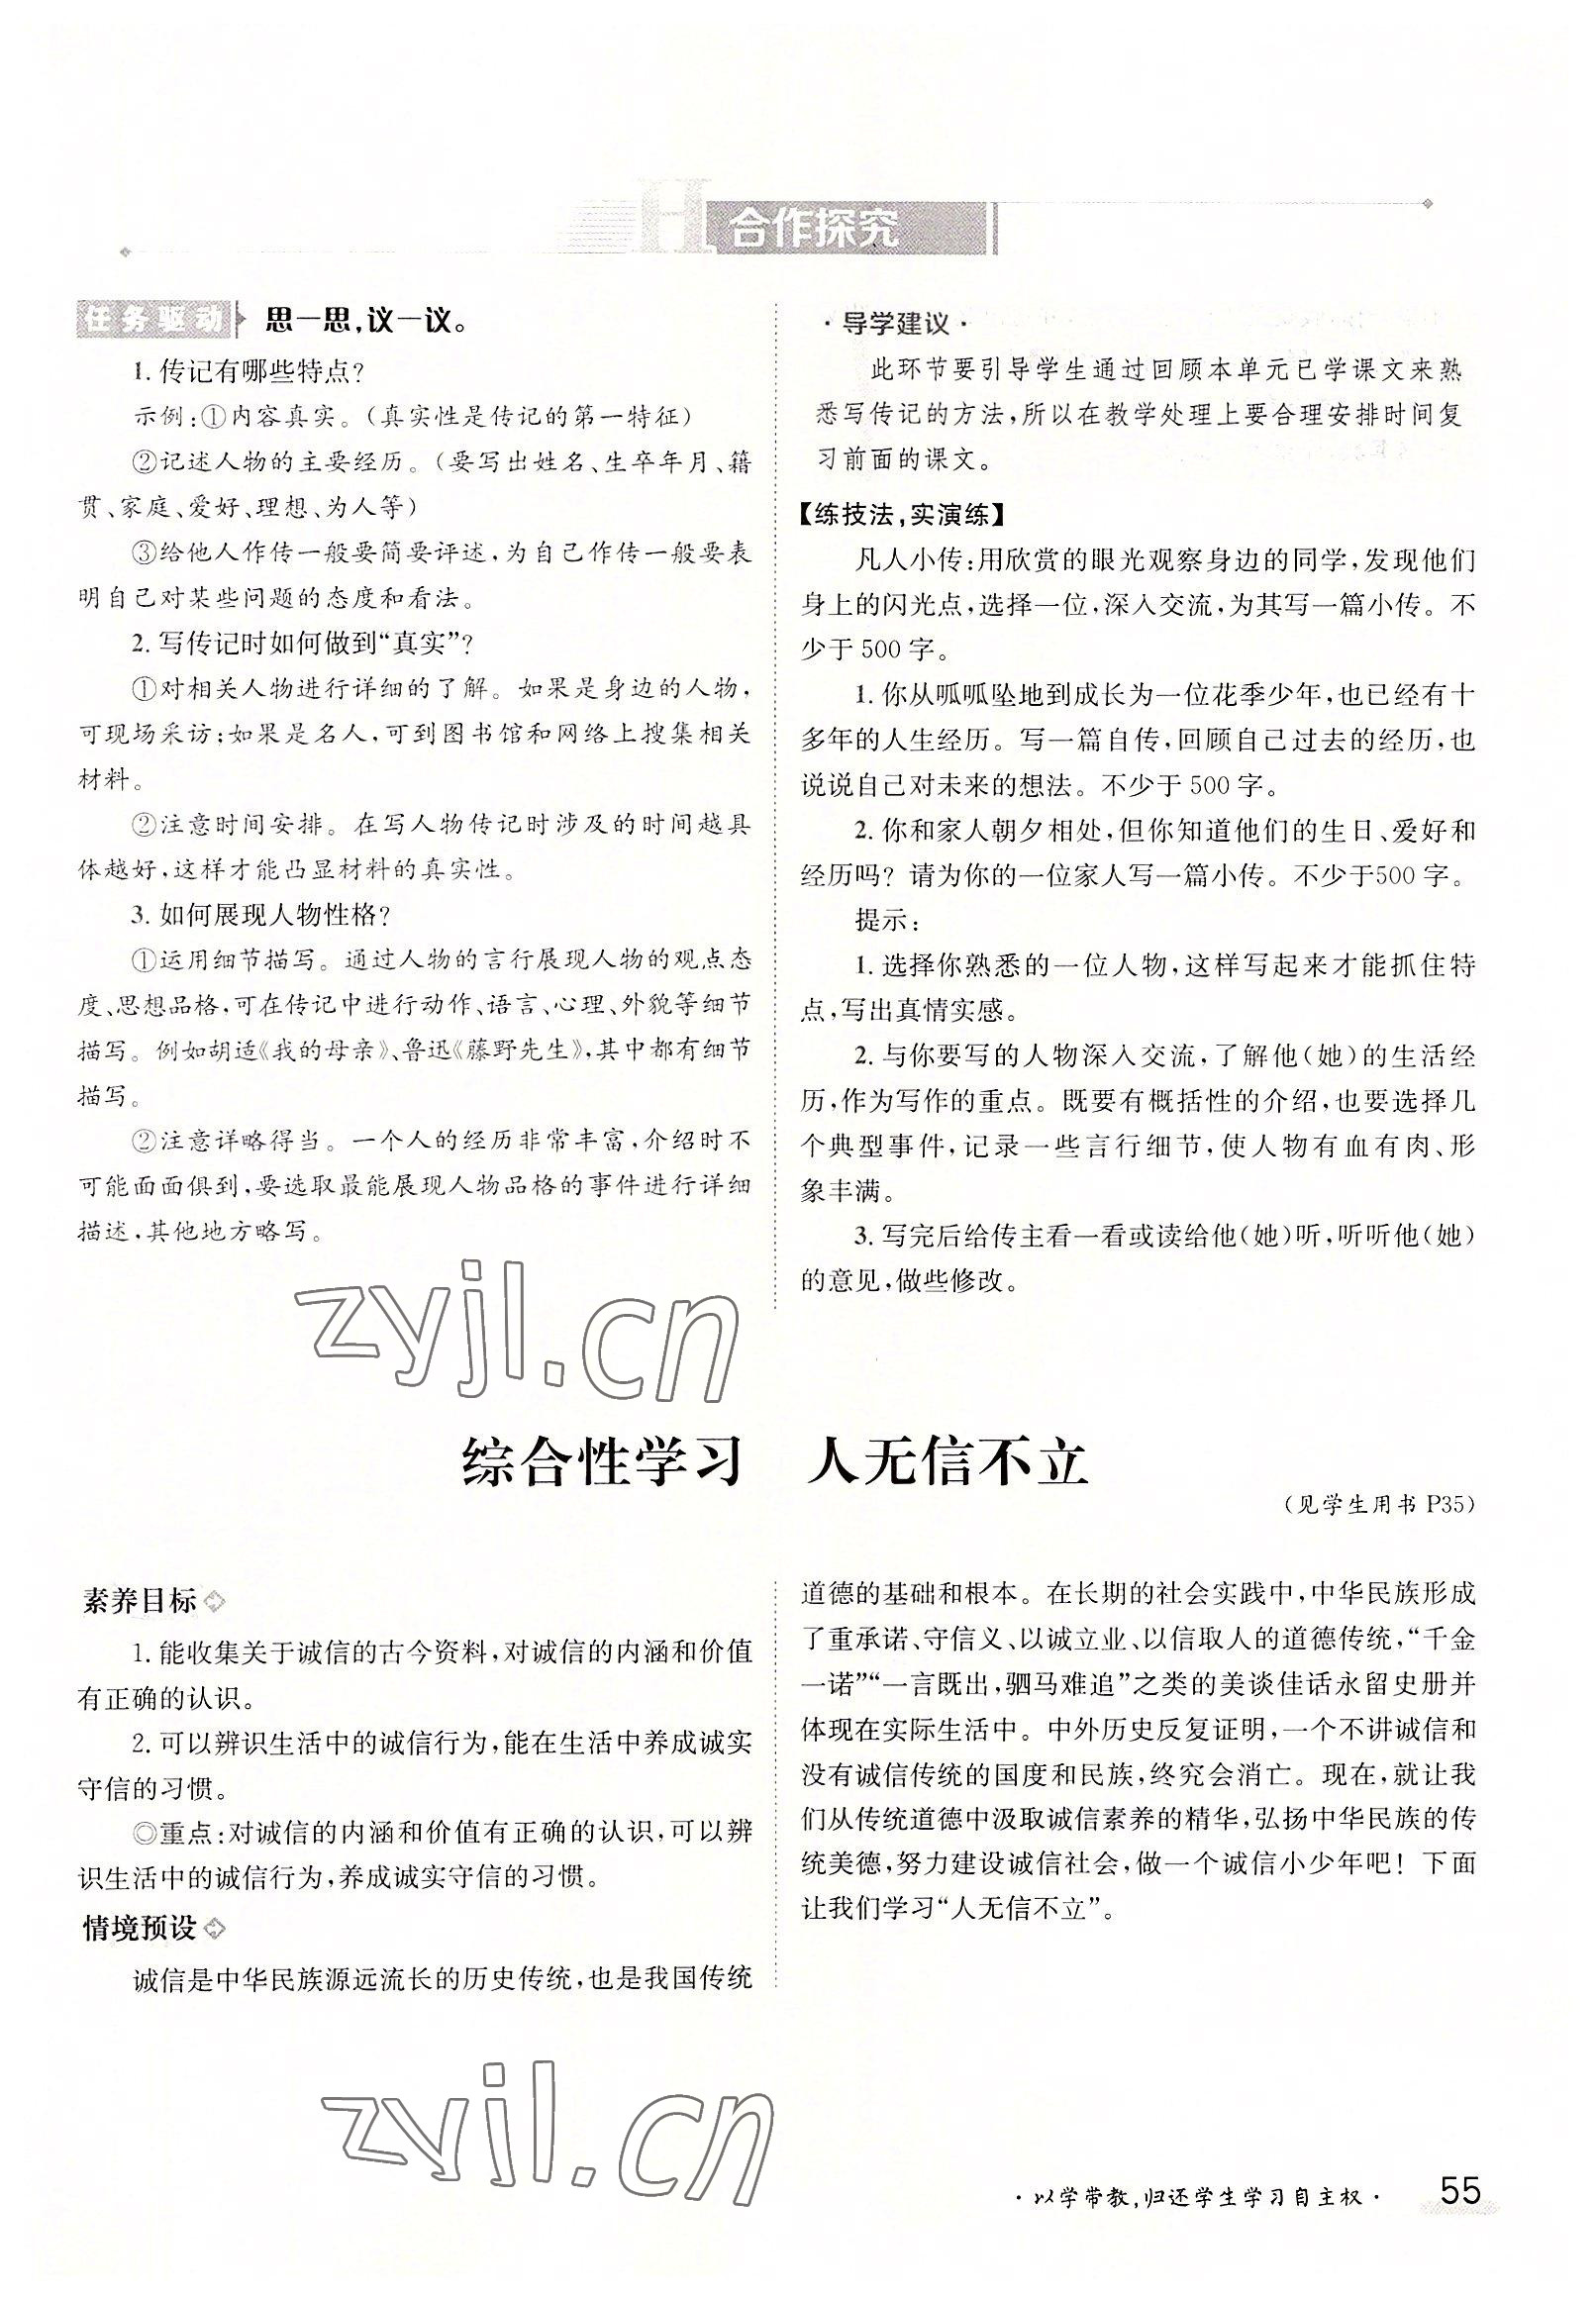 合作探究
任务驱动 思一思,议一议。
1. 传记有哪些特点?
示例:①内容真实。(真实性是传记的第一特征)
②记述人物的主要经历。(要写出姓名、生卒年月、籍
贯、家庭、爱好、理想、为人等)
③给他人作传一般要简要评述,为自己作传一般要表
明自己对某些问题的态度和看法。
2. 写传记时如何做到“真实”?
①对相关人物进行详细的了解。如果是身边的人物,
可现场采访;如果是名人,可到图书馆和网络上搜集相关
材料。
②注意时间安排。在写人物传记时涉及的时间越具
体越好,这样才能凸显材料的真实性。
3. 如何展现人物性格?
①运用细节描写。通过人物的言行展现人物的观点态
度、思想品格,可在传记中进行动作、语言、心理、外貌等细节
描写。例如胡适《我的母亲》、鲁迅《藤野先生》,其中都有细节
描写。
②注意详略得当。一个人的经历非常丰富,介绍时不
可能面面俱到,要选取最能展现人物品格的事件进行详细
描述,其他地方略写。
·导学建议·
此环节要引导学生通过回顾本单元已学课文来熟
悉写传记的方法,所以在教学处理上要合理安排时间复
习前面的课文。
【练技法,实演练】
凡人小传:用欣赏的眼光观察身边的同学,发现他们
身上的闪光点,选择一位,深入交流,为其写一篇小传。不
少于 500 字。
1. 你从呱呱坠地到成长为一位花季少年,也已经有十
多年的人生经历。写一篇自传,回顾自己过去的经历,也
说说自己对未来的想法。不少于 500 字。
2. 你和家人朝夕相处,但你知道他们的生日、爱好和
经历吗? 请为你的一位家人写一篇小传。不少于500 字。
提示:
1. 选择你熟悉的一位人物,这样写起来才能抓住特
点,写出真情实感。
2. 与你要写的人物深入交流,了解他(她)的生活经
历,作为写作的重点。既要有概括性的介绍,也要选择几
个典型事件,记录一些言行细节,使人物有血有肉、形
象丰满。
3. 写完后给传主看一看或读给他(她)听,听听他(她)
的意见,做些修改。
zyjl.cn
综合性学习 人无信不立
(见学生用书 P35)
素养目标
1. 能收集关于诚信的古今资料,对诚信的内涵和价值
有正确的认识。
2. 可以辨识生活中的诚信行为,能在生活中养成诚实
守信的习惯。
◎重点:对诚信的内涵和价值有正确的认识,可以辨
识生活中的诚信行为,养成诚实守信的习惯。
情境预设
诚信是中华民族源远流长的历史传统,也是我国传统
道德的基础和根本。在长期的社会实践中,中华民族形成
了重承诺、守信义、以诚立业、以信取人的道德传统,“千金
一诺”“一言既出,驷马难追”之类的美谈佳话永留史册并
体现在实际生活中。中外历史反复证明,一个不讲诚信和
没有诚信传统的国度和民族,终究会消亡。现在,就让我
们从传统道德中汲取诚信素养的精华,弘扬中华民族的传
统美德,努力建设诚信社会,做一个诚信小少年吧! 下面
让我们学习“人无信不立”。
zyjl.cn
·以学带教,归还学生学习自主权· 55